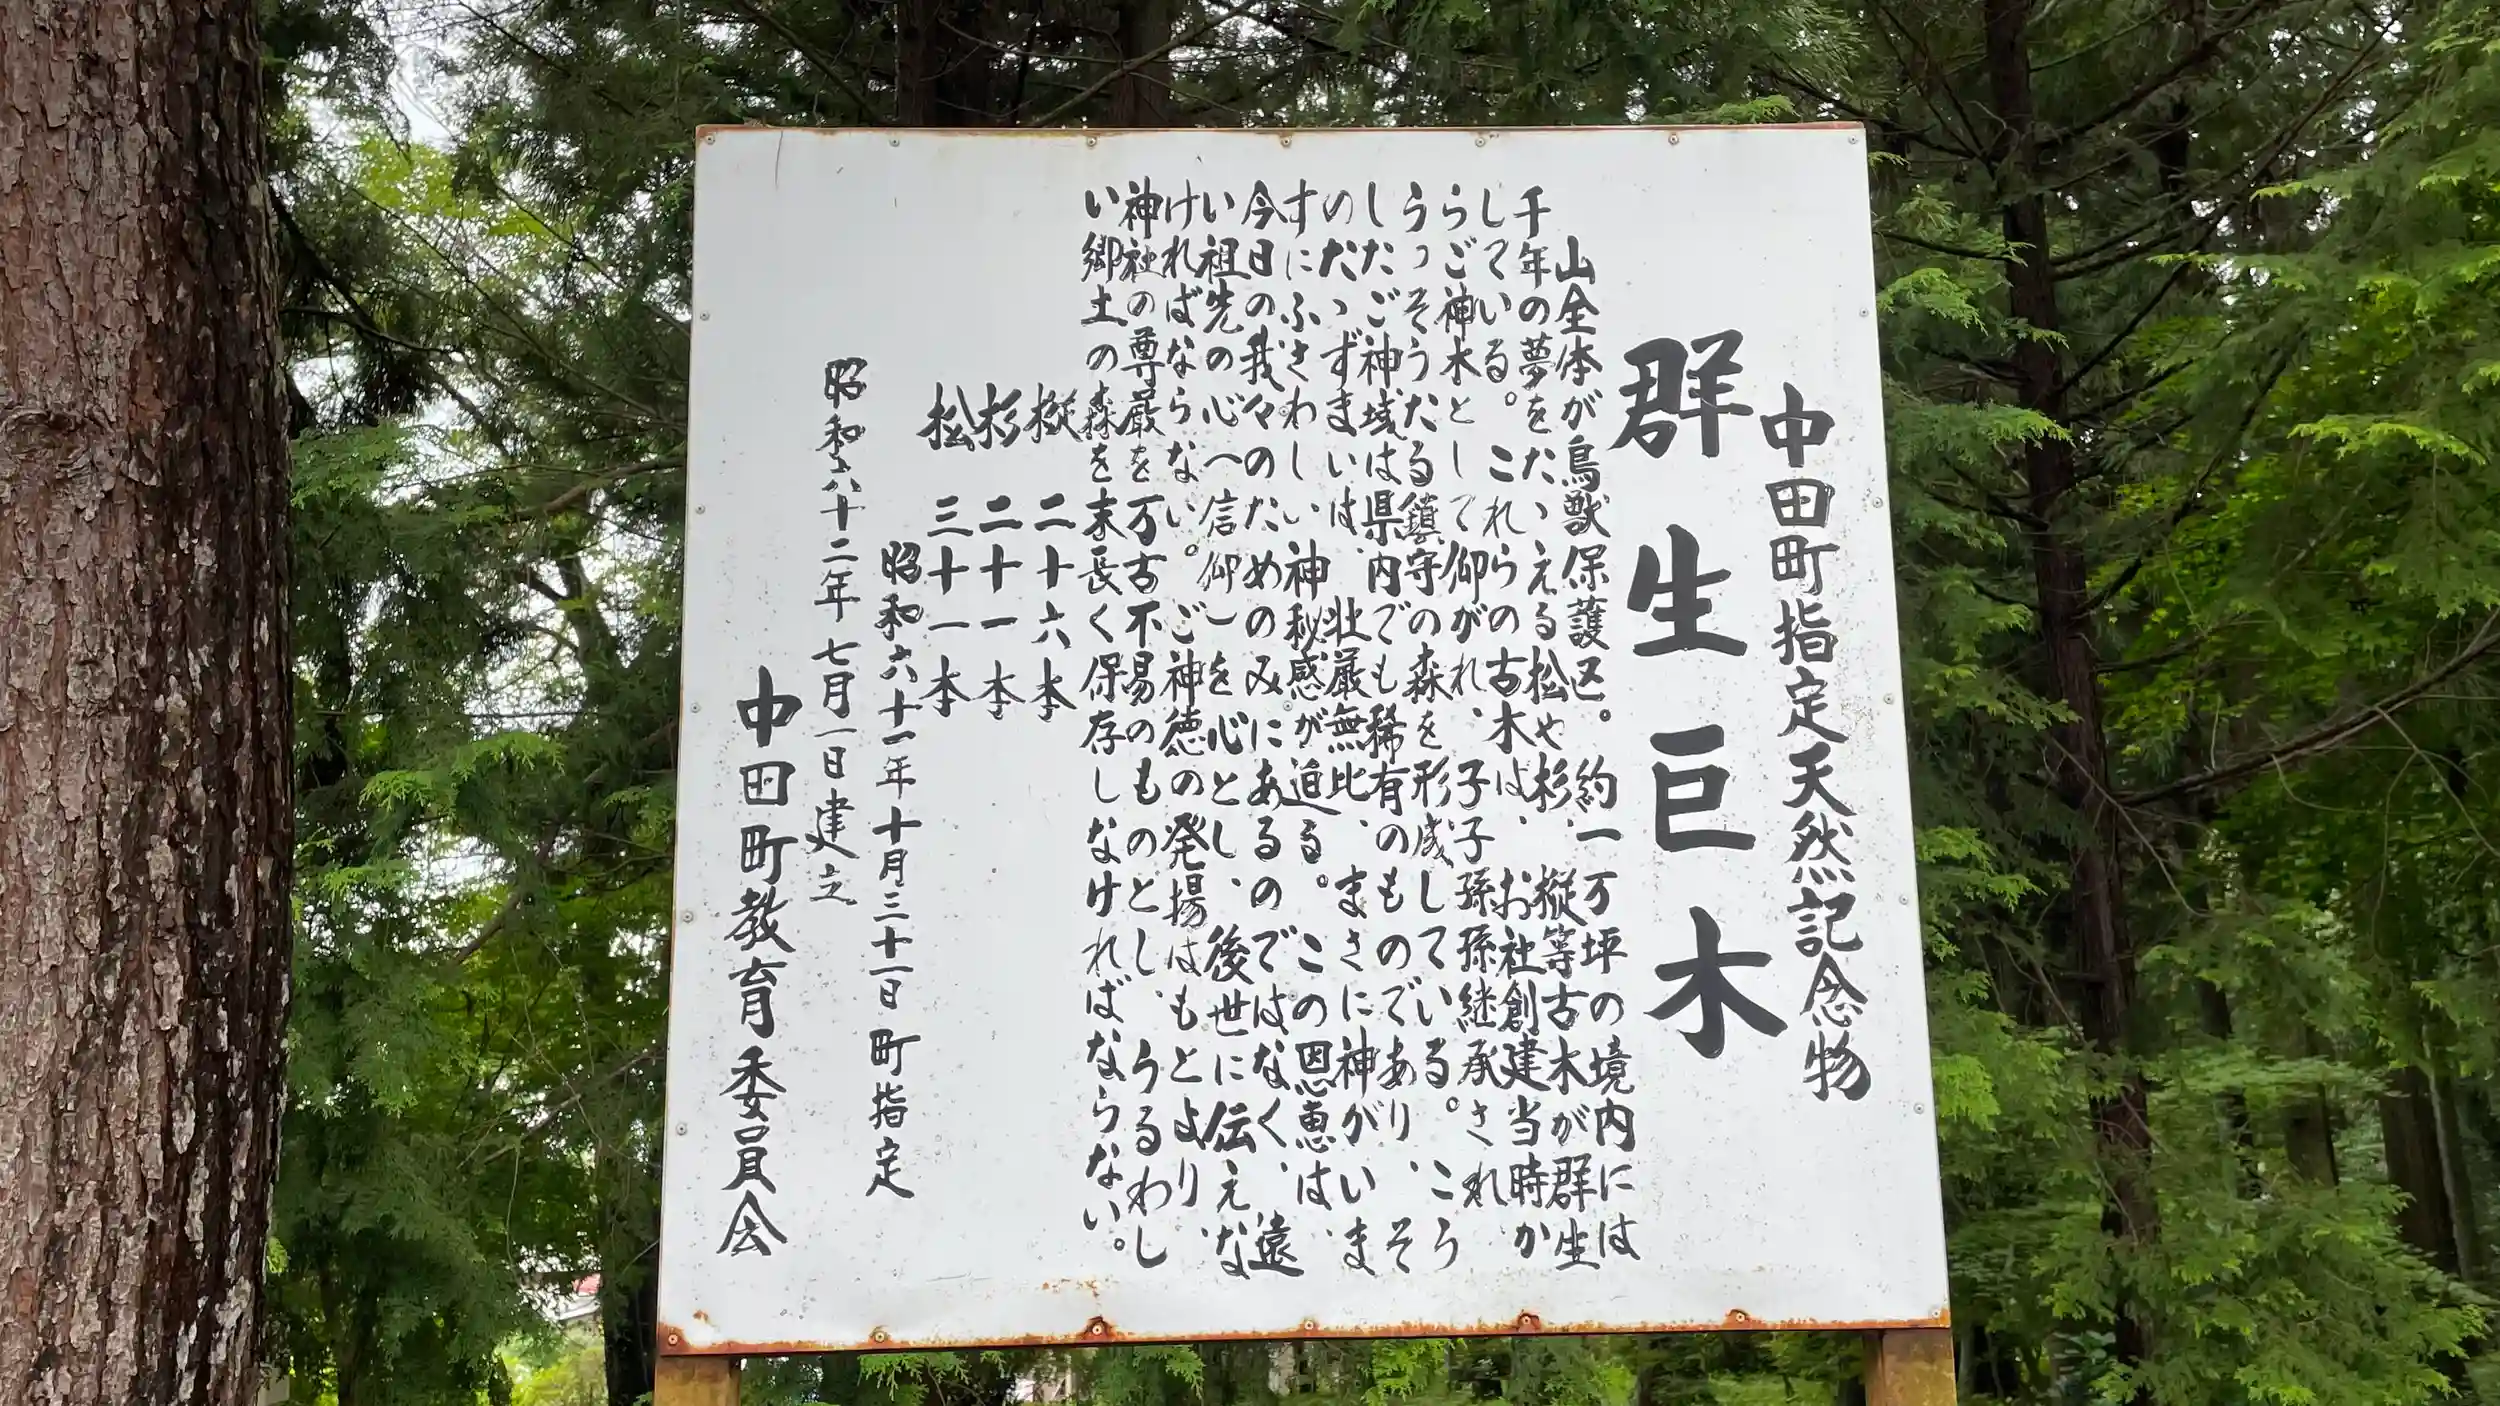 中田町指定天然記念物
群生巨木
山全体が鳥獣保護区。約一万坪の境内には
千年の夢をたゝえる松や杉、樅等古木が群生
している。これらの古木は、お社創建当時か
らご神木として仰がれ、子子孫孫継承され
うっそうたる鎮守の森を形成している。こう
したご神域は県内でも稀有のものであり、そ
のたゝずまいは、壮厳無比、まさに神がいま
すにふさわしい神秘感が迫る。この恩恵は、
今日の我々のためのみにあるのではなく、遠
い祖先の心(信仰)を心とし、後世に伝えな
ければならない。ご神徳の発揚はもとより、
神社の尊厳を万古不易のものとし、うるわし
い郷土の森を末長く保存しなければならない。
樅 二十六本
杉 二十一本
松 三十一本
昭和六十一年十月三十一日町指定
昭和六十二年七月一日建之
中田町教育委員会